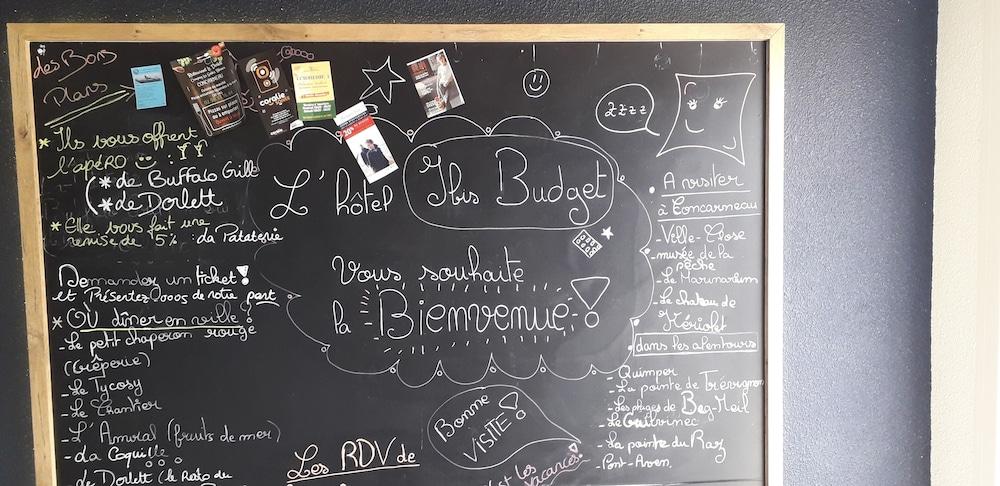 des Bons
Plans
* Ils vous offrent
l'apéro :
(* de Buffalo Grill
* de Dorlett
* Elle vous fait une
remise de 5% . La Pataterie
Demandez un ticket !
et Présentez vous de notre part
* OÙ dîner en ville ?
- Le petit chaperon rouge
(Crêperie)
- Le Tycosy
- Le Chantier
- L'Amiral (fruits de mer)
- La Coquille
de Dorlett (le Resto du
coralie
20%
L'hôtel Ibis Budget
Vous souhaite
la Bienvenue !
Bonne
VISITE !
Les RDV de
c'est les
vacances!
zzzz
. A visiter
à Concarneau
- Ville-Close
- musée de la
pêche
- Le Marinarium
- Le chateau de
Kériolet
dans les alentours
- Quimper
- La pointe de Trévignon
- Les plages de Beg-Meil
- Le Guilvinec
- La pointe du Raz
- Pont-Aven